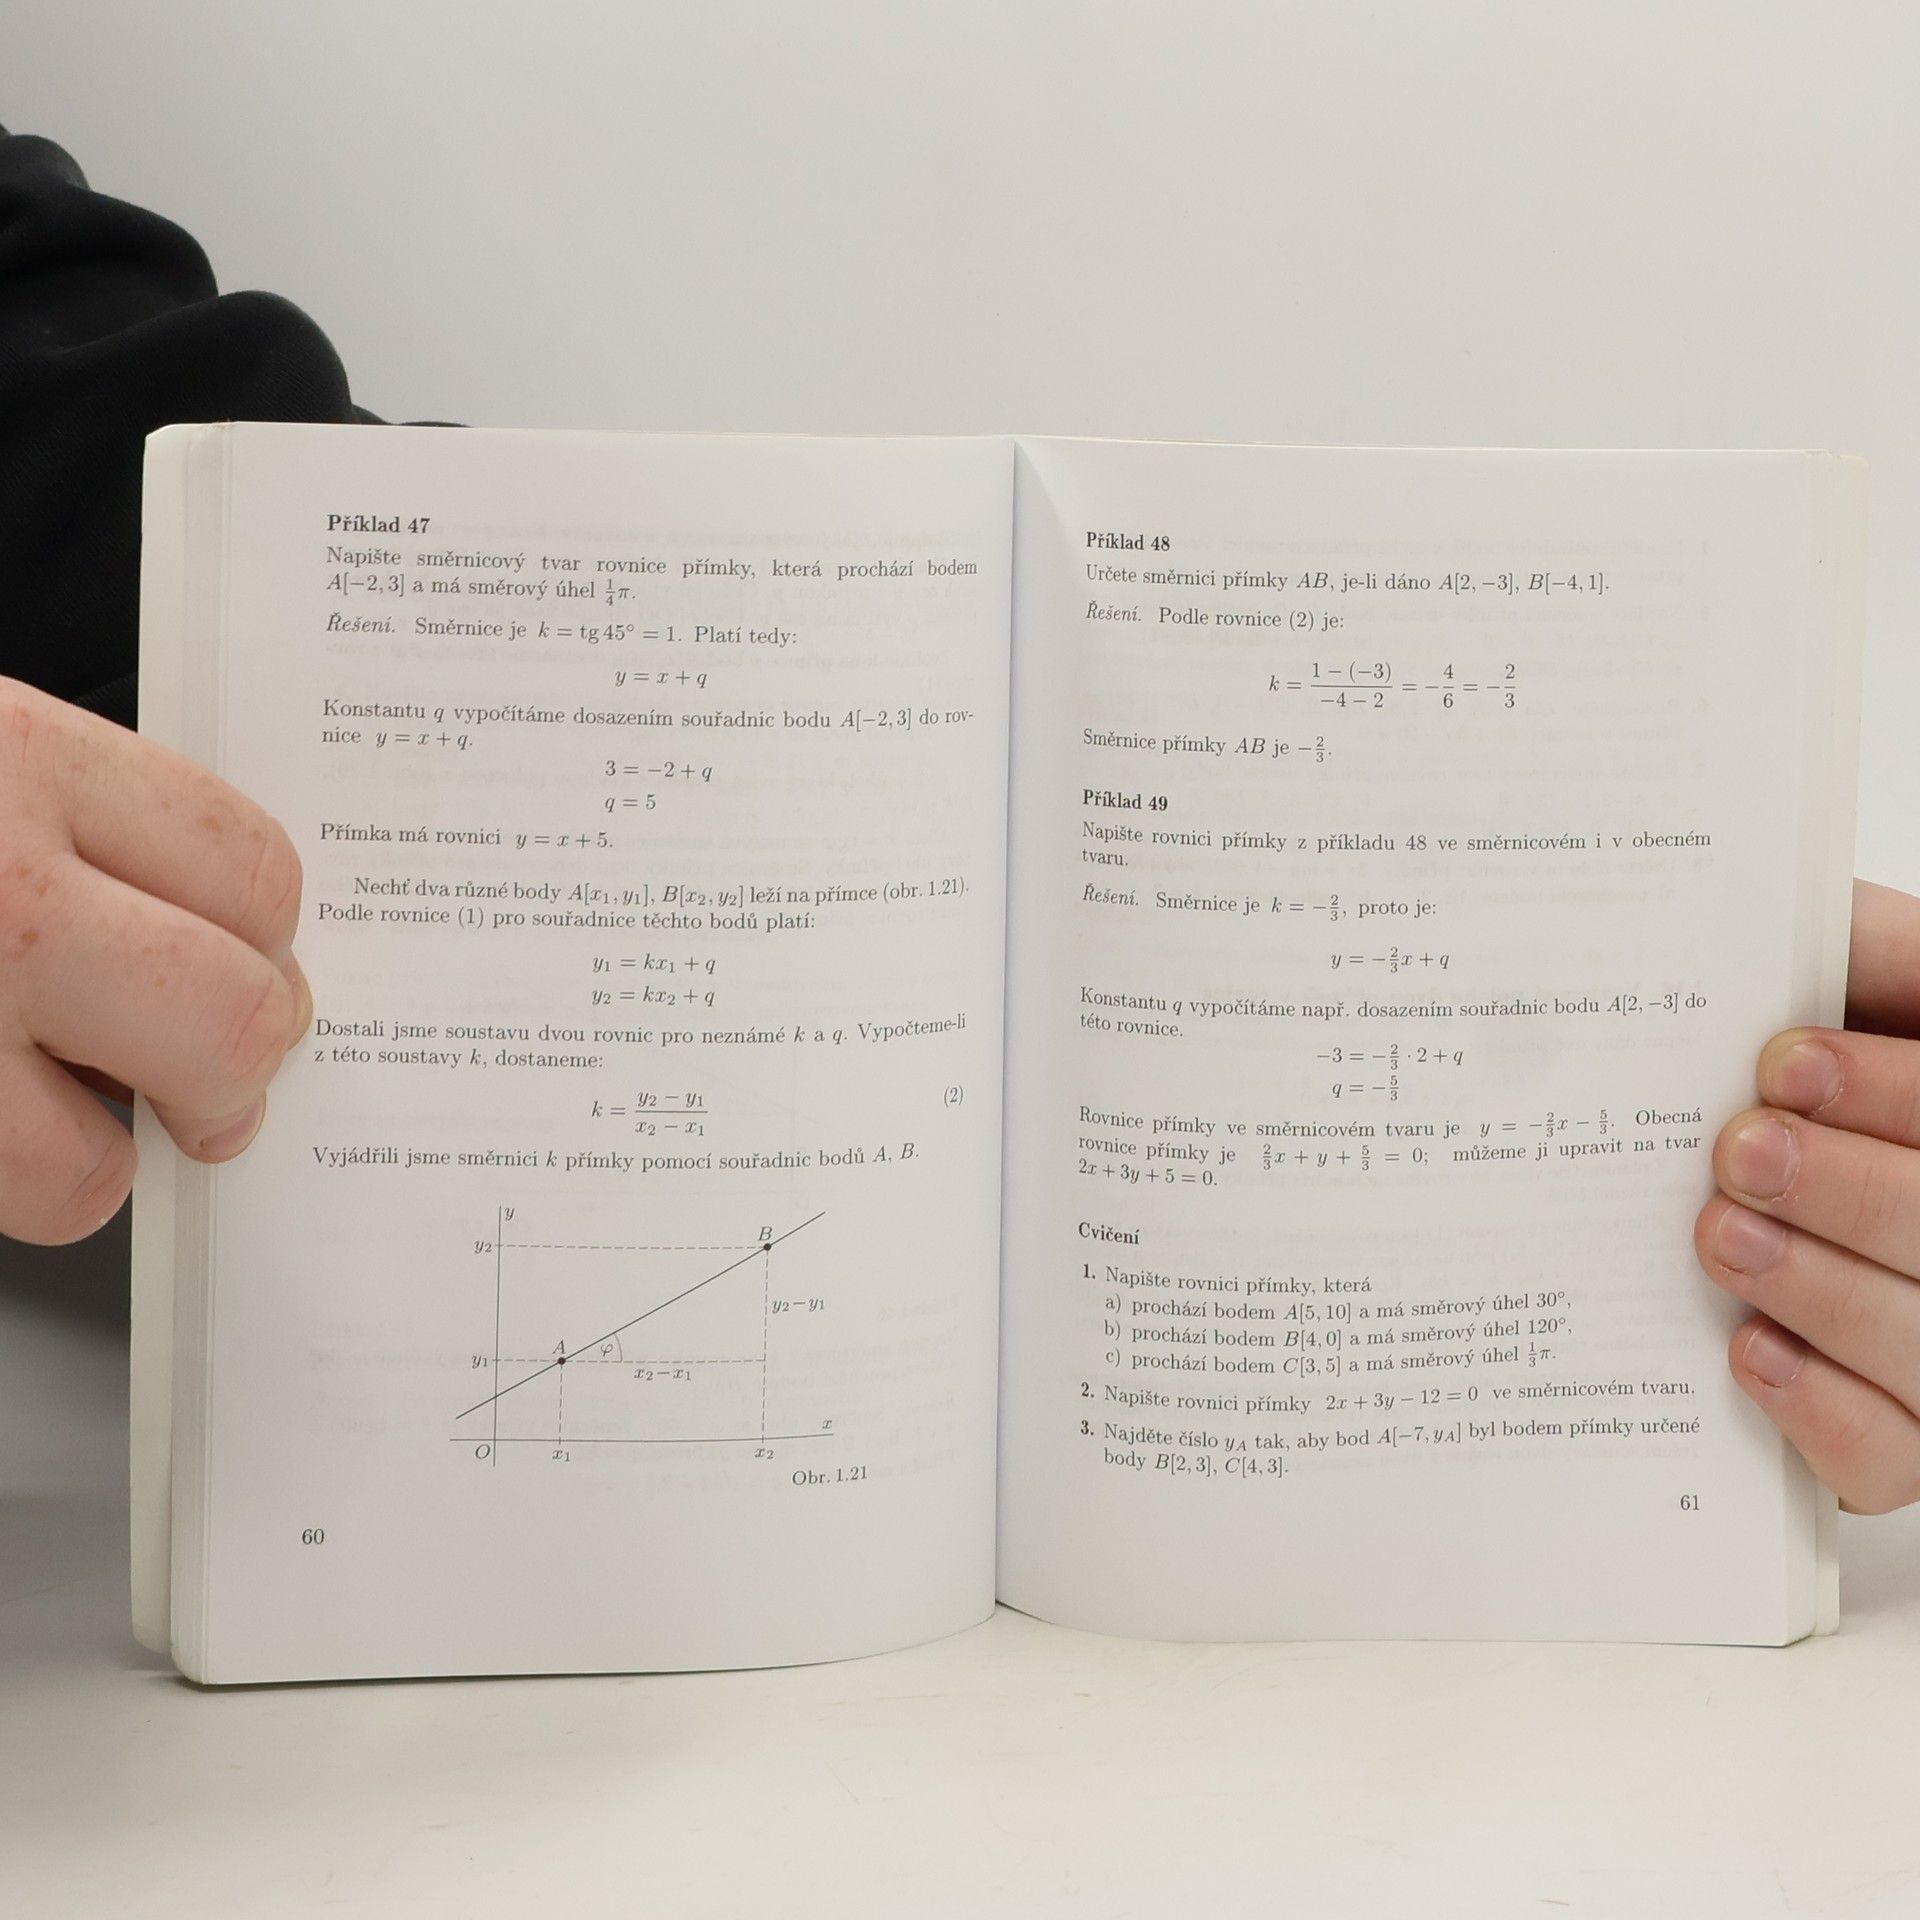 Příklad 47
Napište směrnicový tvar rovnice přímky, která prochází bodem
A[−2, 3] a má směrový úhel 1/4 π.
Řešení. Směrnice je k = tg 45° = 1. Platí tedy:
y = x + q
Konstantu q vypočítáme dosazením souřadnic bodu A[−2, 3] do rov-
nice y = x + q.
3 = −2 + q
q = 5
Přímka má rovnici y = x + 5.
Nechť dva různé body A[x₁, y₁], B[x₂, y₂] leží na přímce (obr. 1.21).
Podle rovnice (1) pro souřadnice těchto bodů platí:
y₁ = kx₁ + q
y₂ = kx₂ + q
Dostali jsme soustavu dvou rovnic pro neznámé k a q. Vypočteme-li
z této soustavy k, dostaneme:
k = (y₂ − y₁)/(x₂ − x₁) (2)
Vyjádřili jsme směrnici k přímky pomocí souřadnic bodů A, B.
y
B
y₂
y₂−y₁
A
φ
y₁
x₂−x₁
x
O
x₁
x₂
Obr. 1.21
60
Příklad 48
Určete směrnici přímky AB, je-li dáno A[2, −3], B[−4, 1].
Řešení. Podle rovnice (2) je:
k = (1 − (−3))/(−4 − 2) = −4/6 = −2/3
Směrnice přímky AB je −2/3.
Příklad 49
Napište rovnici přímky z příkladu 48 ve směrnicovém i v obecném
tvaru.
Řešení. Směrnice je k = −2/3, proto je:
y = −2/3 x + q
Konstantu q vypočítáme např. dosazením souřadnic bodu A[2, −3] do
této rovnice.
−3 = −2/3 · 2 + q
q = −5/3
Rovnice přímky ve směrnicovém tvaru je y = −2/3 x − 5/3. Obecná
rovnice přímky je 2/3 x + y + 5/3 = 0; můžeme ji upravit na tvar
2x + 3y + 5 = 0.
Cvičení
1. Napište rovnici přímky, která
a) prochází bodem A[5, 10] a má směrový úhel 30°,
b) prochází bodem B[4, 0] a má směrový úhel 120°,
c) prochází bodem C[3, 5] a má směrový úhel 1/3 π.
2. Napište rovnici přímky 2x + 3y − 12 = 0 ve směrnicovém tvaru.
3. Najděte číslo y_A tak, aby bod A[−7, y_A] byl bodem přímky určené
body B[2, 3], C[4, 3].
61